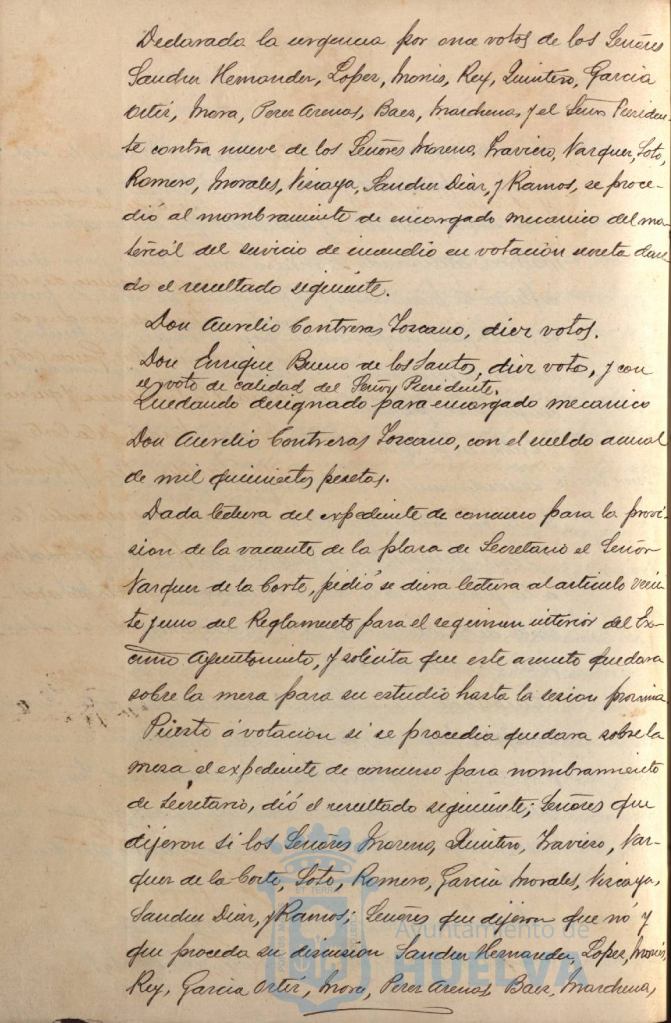 Declarada la urgencia por once votos de los Señores
Sanchez Hernandez, Lopez, Monis, Rey, Quintero, Garcia
Ortiz, Mora, Perez Arenas, Baez, Marchena, y el Señor Presiden-
te contra nueve de los Señores Moreno, Traviero, Vazquez, Soto,
Romero, Morales, Vizcaya, Sanchez Diaz, y Ramos, se proce-
dió al nombramiento de encargado mecanico del ma-
terial del servicio de incendio en votación secreta dan-
do el resultado siguiente.
Don Aurelio Contreras Toscano, diez votos.
Don Enrique Bueno de los Santos, diez voto, y con
el voto de calidad del Señor Presidente.
Quedando designado para encargado mecanico
Don Aurelio Contreras Toscano, con el sueldo anual
de mil quinientos pesetas.
Dada lectura del expediente de concurso para la provi
sion de la vacante de la plaza de Secretario el Señor
Vazquez de la Corte, pidió se diera lectura al articulo vein
te y uno del Reglamento para el regimen interior del Ex-
cmo Ayuntamiento, y solicita que este asunto quedara
sobre la mesa para su estudio hasta la sesion proxima
Puesto á votacion si se procedia quedara sobre la
mesa el expediente de concurso para nombramiento
de Secretario, dió el resultado siguiente; Señores que
dijeron si los Señores Moreno, Quintero, Traviero, Vaz-
quez de la Corte, Soto, Romero, Garcia Morales, Vizcaya,
Sanchez Diaz, y Ramos; Señores que dijeron que nó y
que proceda su discusion Sanchez Hernandez, Lopez, Monis,
Rey, Garcia Ortiz, Mora, Perez Arenas, Baez, Marchena,
Ayuntamiento de
HUELVA